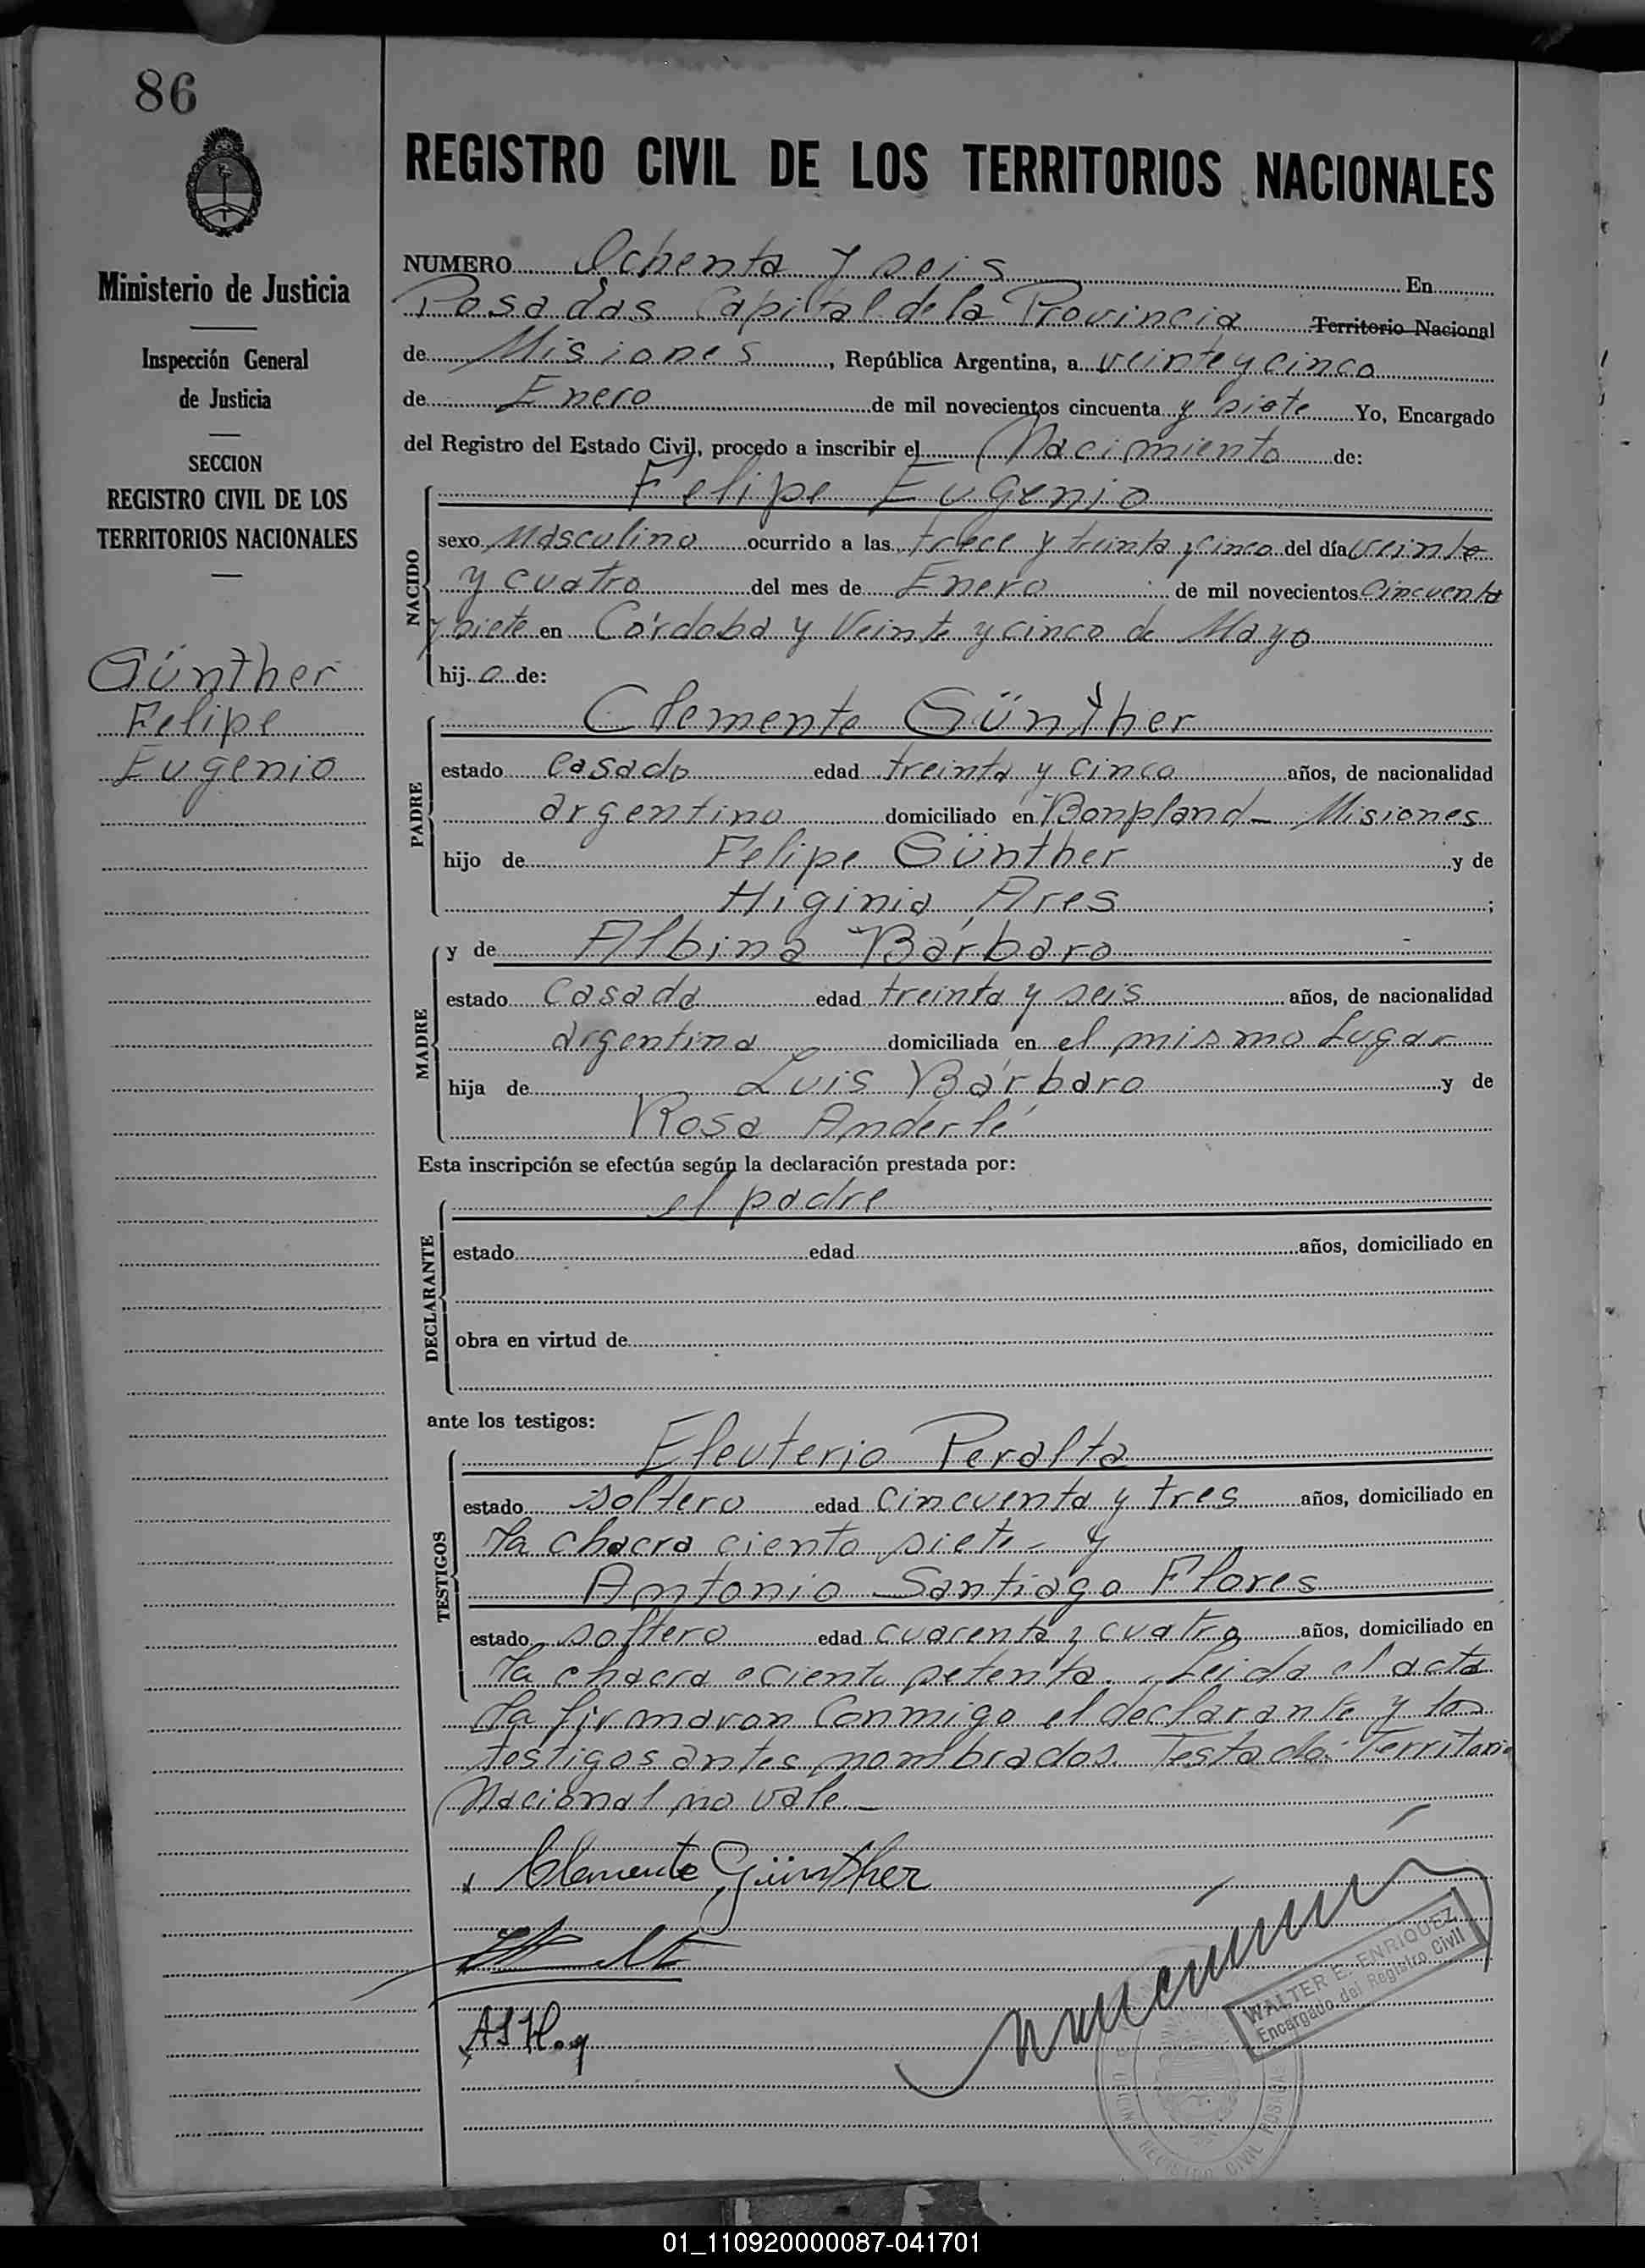 86
Ministerio de Justicia
Inspección General
de Justicia
SECCION
REGISTRO CIVIL DE LOS
TERRITORIOS NACIONALES
Günther
Felipe
Eugenio
REGISTRO CIVIL DE LOS TERRITORIOS NACIONALES
NUMERO Ochenta y seis En
Posadas Capital de la Provincia Territorio Nacional
de Misiones, República Argentina, a veinte y cinco
de Enero de mil novecientos cincuenta y siete Yo, Encargado
del Registro del Estado Civil, procedo a inscribir el Nacimiento de:
NACIDO
Felipe Eugenio
sexo Masculino ocurrido a las trece y treinta y cinco del día veinte
y cuatro del mes de Enero de mil novecientos Cincuenta
y siete en Córdoba y Veinte y cinco de Mayo
hijo de:
PADRE
Clemente Günther
estado casado edad treinta y cinco años, de nacionalidad
argentino domiciliado en Bonpland - Misiones
hijo de Felipe Günther y de
Higinia Ares;
MADRE
y de Albina Bárbaro
estado casada edad treinta y seis años, de nacionalidad
argentina domiciliada en el mismo Lugar
hija de Luis Bárbaro y de
Rosa Anderlé
Esta inscripción se efectúa según la declaración prestada por:
DECLARANTE
el padre
estado edad años, domiciliado en
obra en virtud de
ante los testigos:
TESTIGOS
Eleuterio Peralta
estado soltero edad cincuenta y tres años, domiciliado en
la chacra ciento siete - y
Antonio Santiago Flores
estado soltero edad cuarenta y cuatro años, domiciliado en
la chacra ciento setenta. Leida el acta
la firmaron conmigo el declarante y los
testigos antes nombrados. Testado: Territorio
Nacional no vale.-
Clemente Günther
WALTER E. ENRIQUEZ
Encargado del Registro Civil
REGISTRO CIVIL POSADAS
01_110920000087-041701